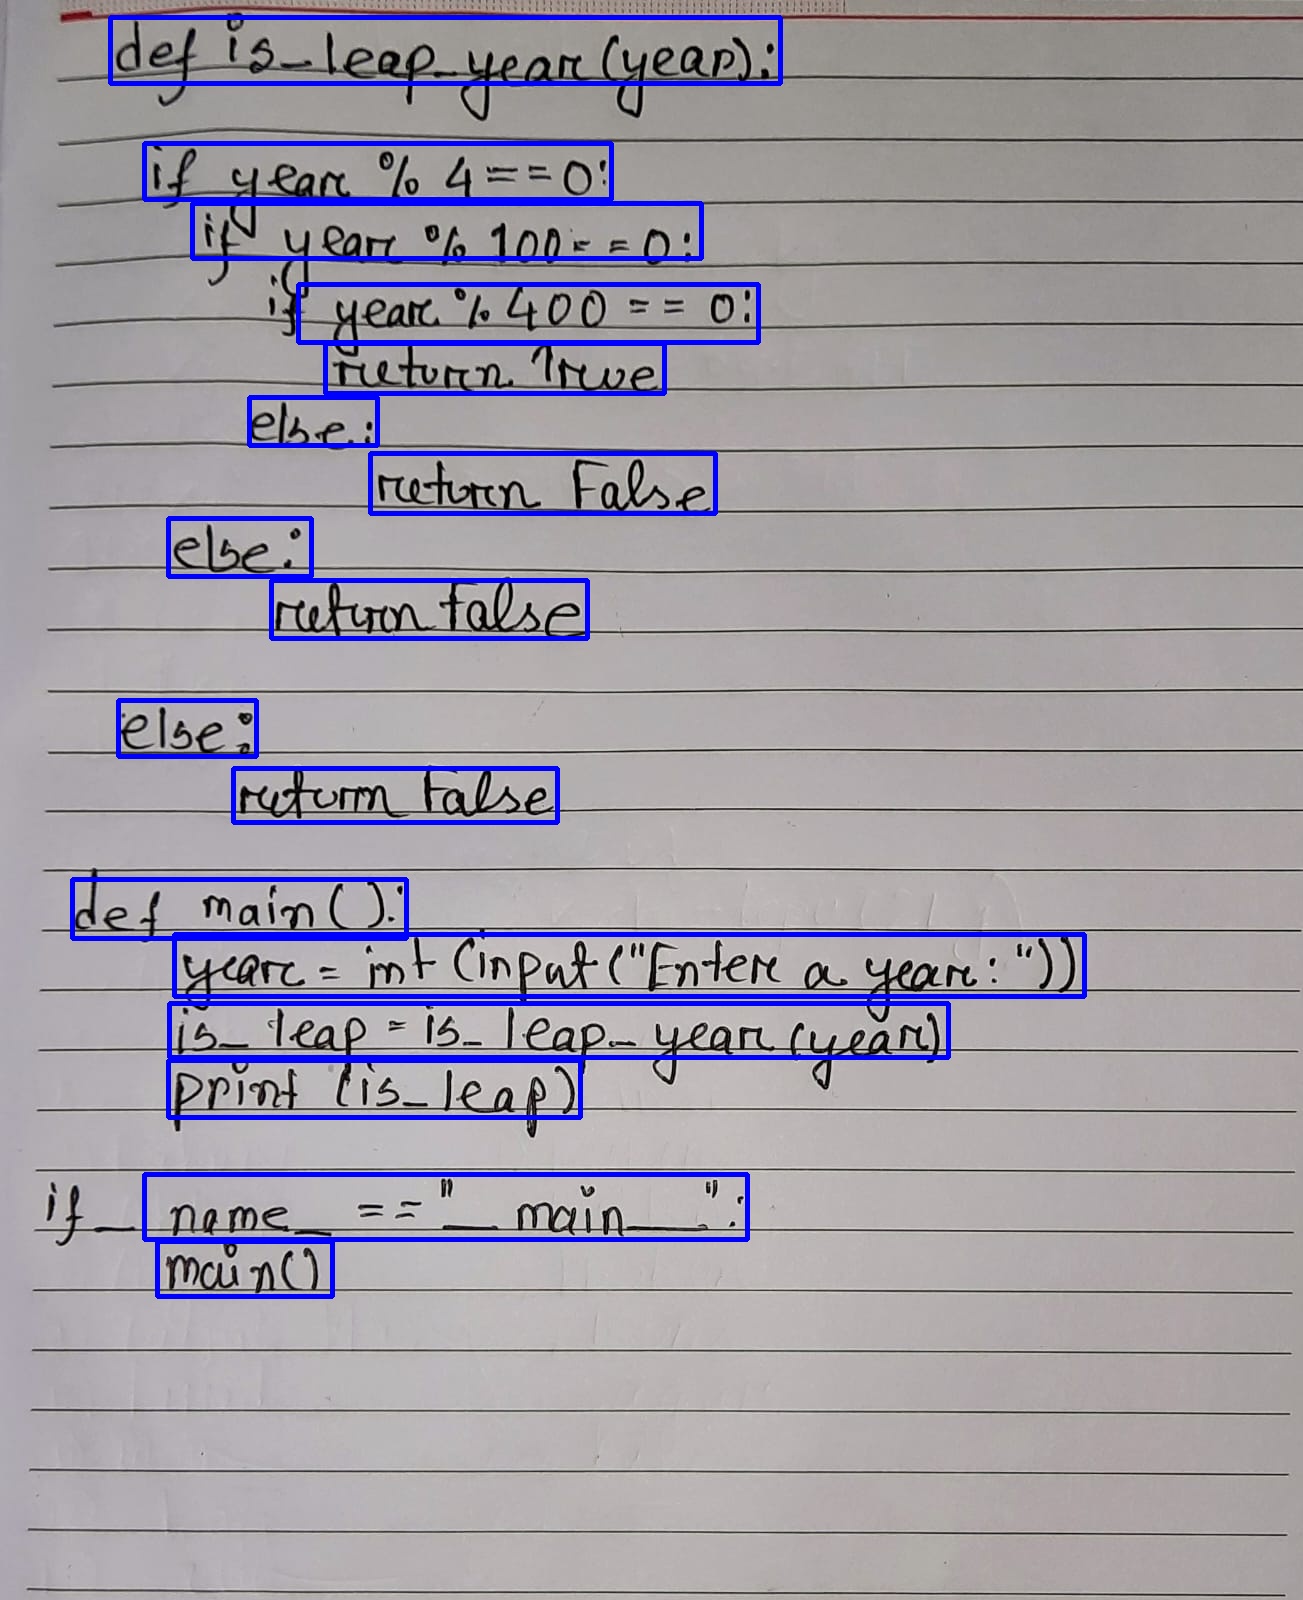 def is_leap_year(year):
if year % 4 == 0:
if year % 100 == 0:
if year % 400 == 0:
return True
else:
return False
else:
return False
else:
return False
def main():
year = int (input ("Enter a year: "))
is_leap = is_leap_year (year)
print (is_leap)
if _ name _ == "_ main _":
main()